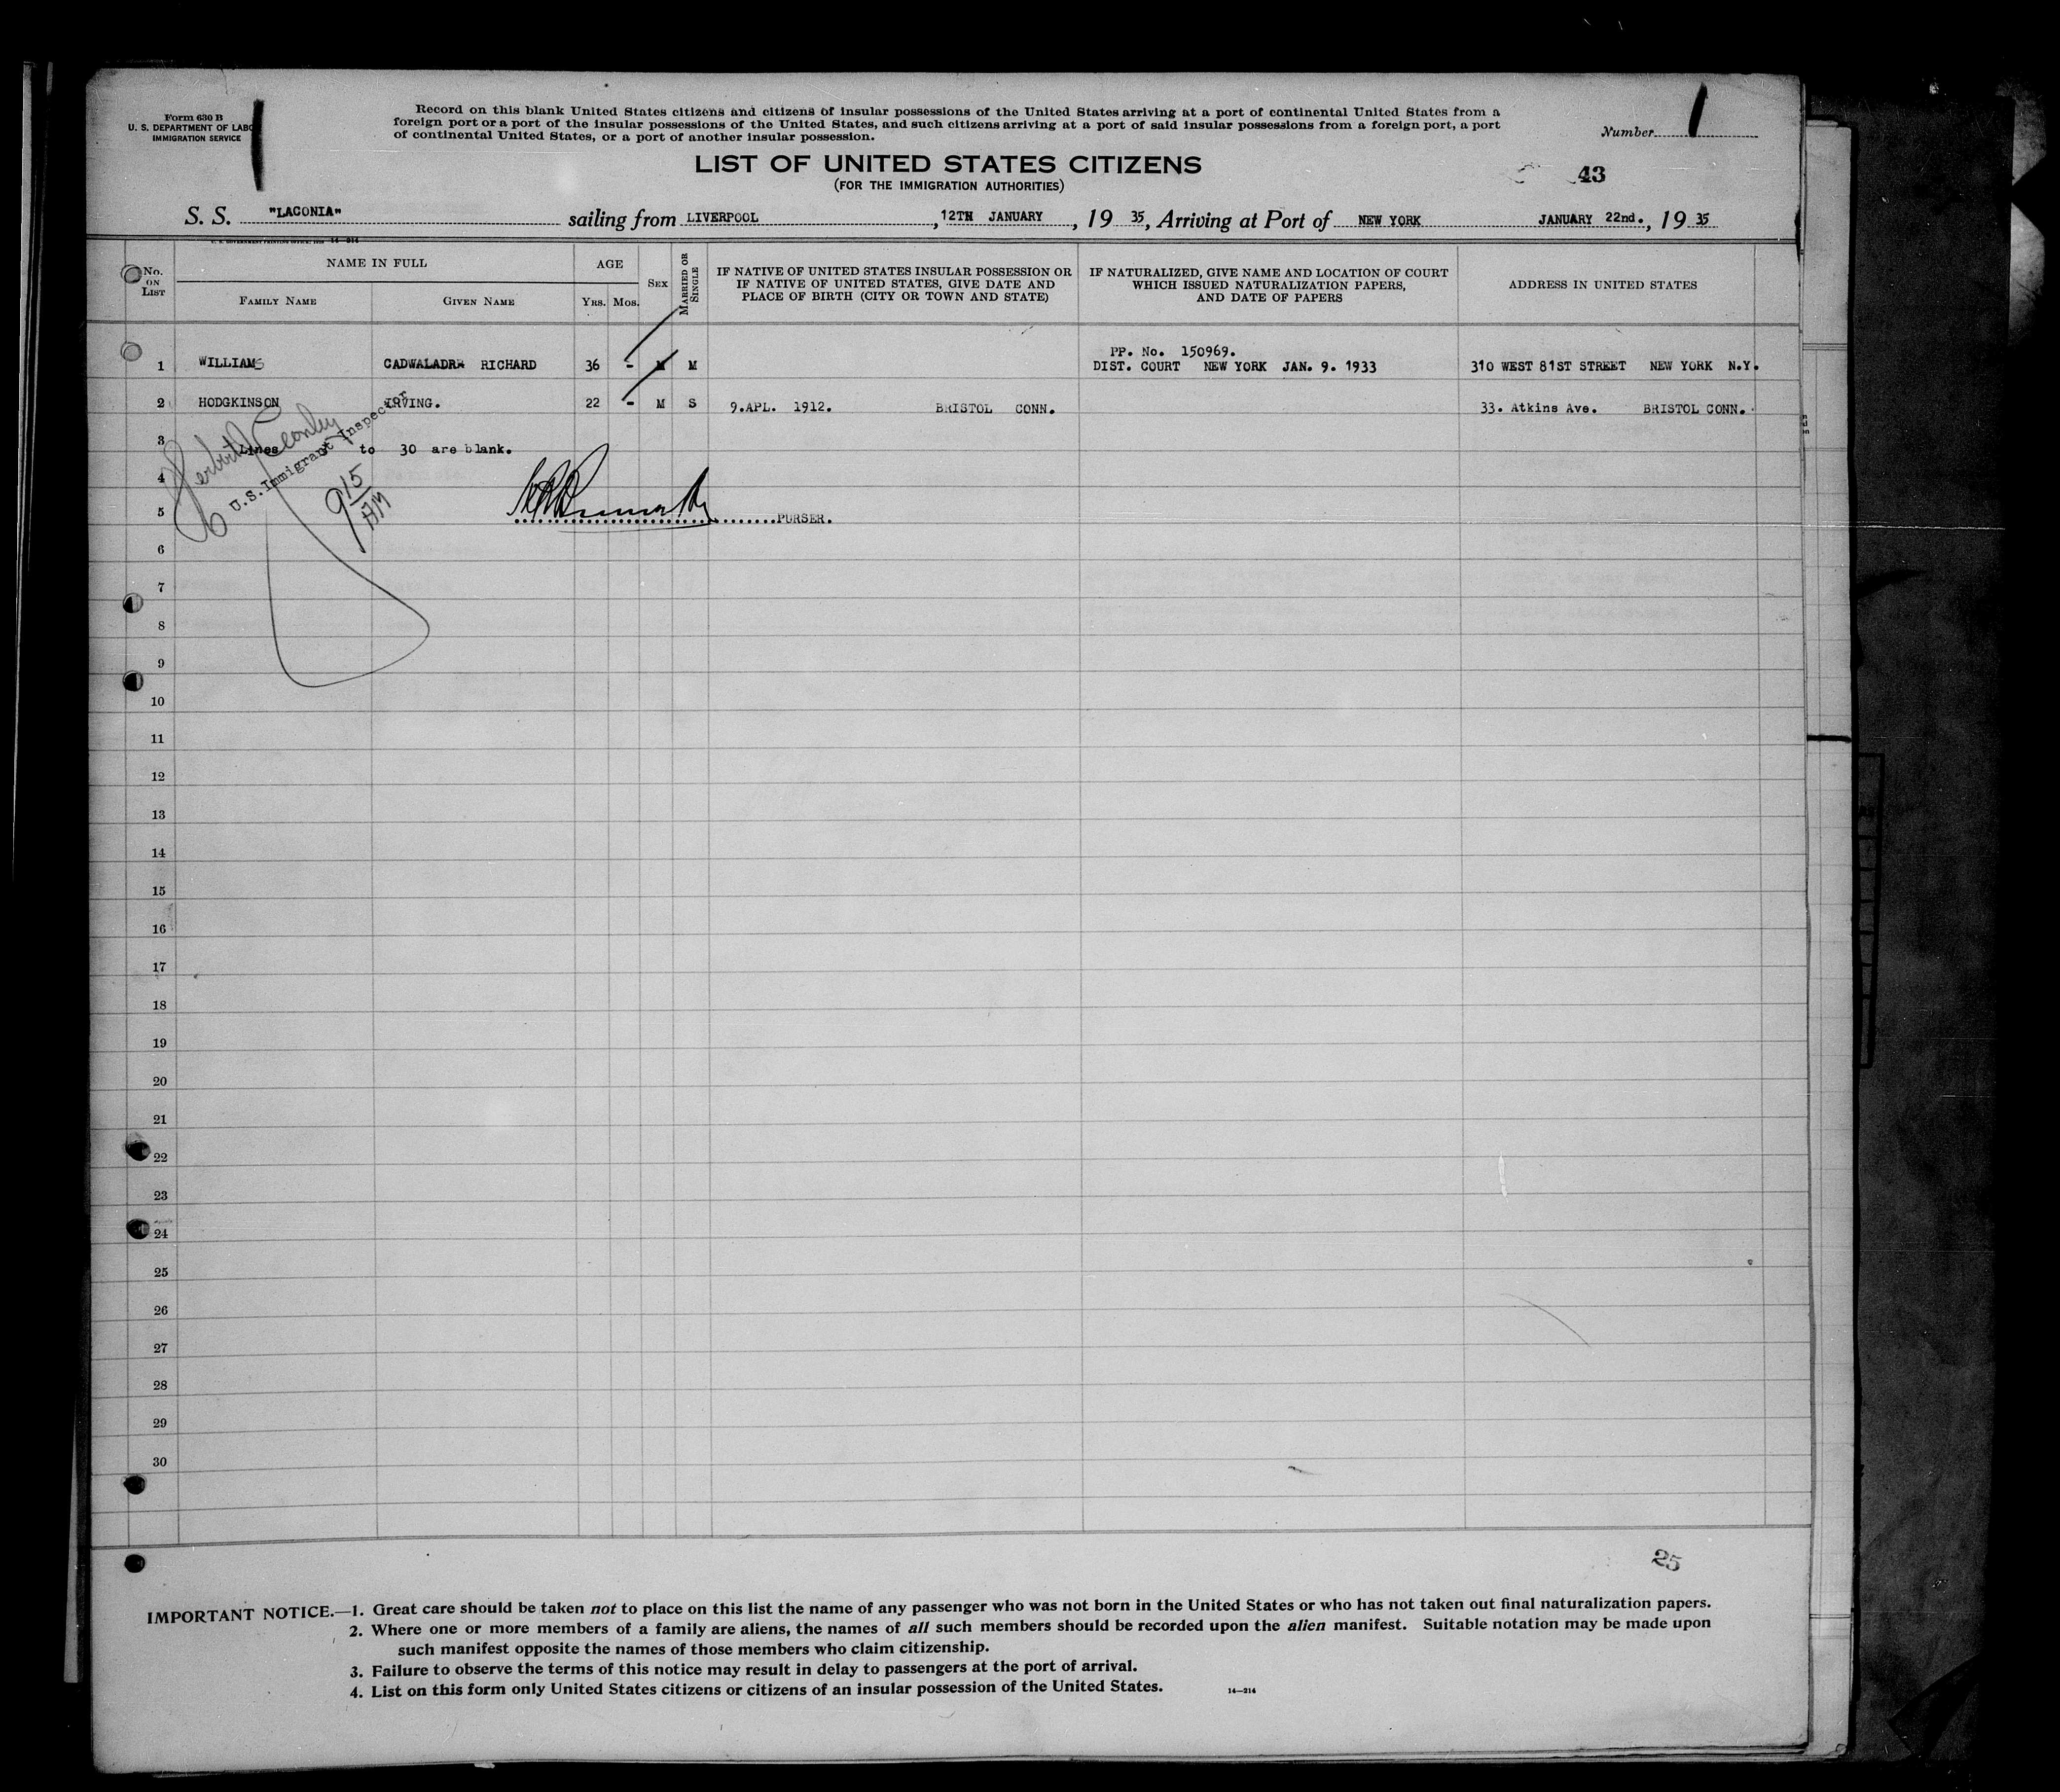 Form 630 B
U. S. DEPARTMENT OF LABO
IMMIGRATION SERVICE
Record on this blank United States citizens and citizens of insular possessions of the United States arriving at a port of continental United States from a
foreign port or a port of the insular possessions of the United States, and such citizens arriving at a port of said insular possessions from a foreign port, a port
of continental United States, or a port of another insular possession.
Number 1
LIST OF UNITED STATES CITIZENS
(FOR THE IMMIGRATION AUTHORITIES)
43
S. S. "LACONIA" sailing from LIVERPOOL, 12TH JANUARY, 19 35, Arriving at Port of NEW YORK JANUARY 22nd., 19 35
No. ON LIST
NAME IN FULL
FAMILY NAME
GIVEN NAME
AGE
YRS. MOS.
SEX
MARRIED OR SINGLE
IF NATIVE OF UNITED STATES INSULAR POSSESSION OR
IF NATIVE OF UNITED STATES, GIVE DATE AND
PLACE OF BIRTH (CITY OR TOWN AND STATE)
IF NATURALIZED, GIVE NAME AND LOCATION OF COURT
WHICH ISSUED NATURALIZATION PAPERS,
AND DATE OF PAPERS
ADDRESS IN UNITED STATES
PP. No. 150969.
1 WILLIAMS CADWALADR RICHARD 36 - M M DIST. COURT NEW YORK JAN. 9. 1933 310 WEST 81ST STREET NEW YORK N.Y.
2 HODGKINSON IRVING. 22 - M S 9.APL. 1912. BRISTOL CONN. 33. Atkins Ave. BRISTOL CONN.
3 Lines 3 to 30 are blank.
U.S. Immigrant Inspector
4
9 15 AM
5 PURSER.
6
7
8
9
10
11
12
13
14
15
16
17
18
19
20
21
22
23
24
25
26
27
28
29
30
25
IMPORTANT NOTICE.—1. Great care should be taken not to place on this list the name of any passenger who was not born in the United States or who has not taken out final naturalization papers.
2. Where one or more members of a family are aliens, the names of all such members should be recorded upon the alien manifest. Suitable notation may be made upon
such manifest opposite the names of those members who claim citizenship.
3. Failure to observe the terms of this notice may result in delay to passengers at the port of arrival.
4. List on this form only United States citizens or citizens of an insular possession of the United States.
14—214